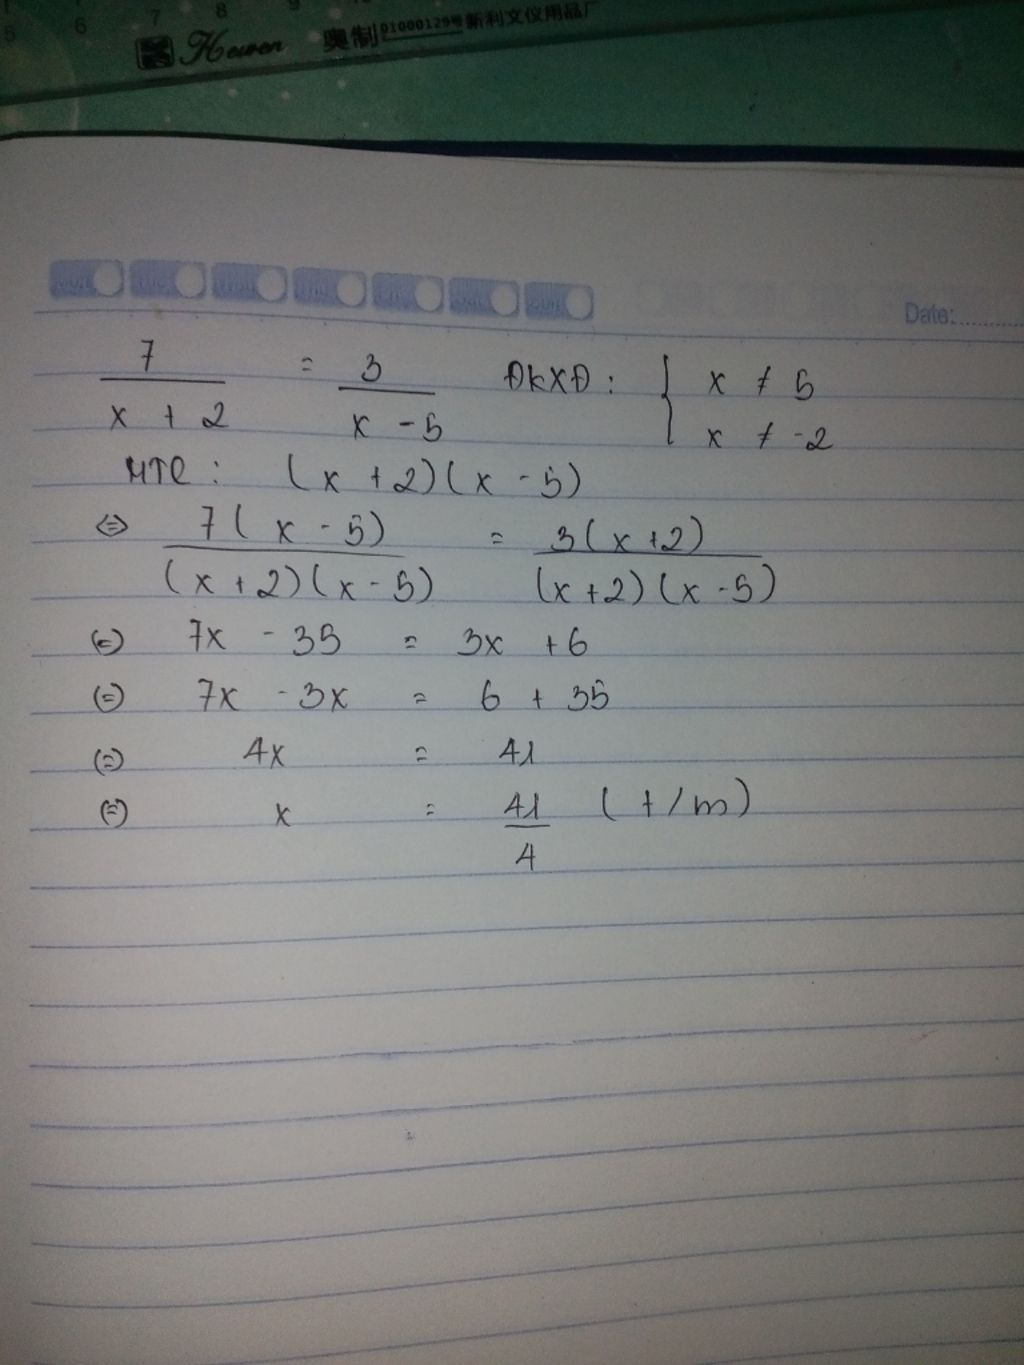 5 6 7 8 9
Hewen 奥制01000129号新利文仪用品厂
Date:
7 / (x + 2) = 3 / (x - 5) ĐKXĐ: { x ≠ 5
x ≠ -2
MTC: (x + 2)(x - 5)
⇔ 7(x - 5) / (x + 2)(x - 5) = 3(x + 2) / (x + 2)(x - 5)
(=) 7x - 35 = 3x + 6
(=) 7x - 3x = 6 + 35
(=) 4x = 41
(=) x = 41 / 4 (t/m)